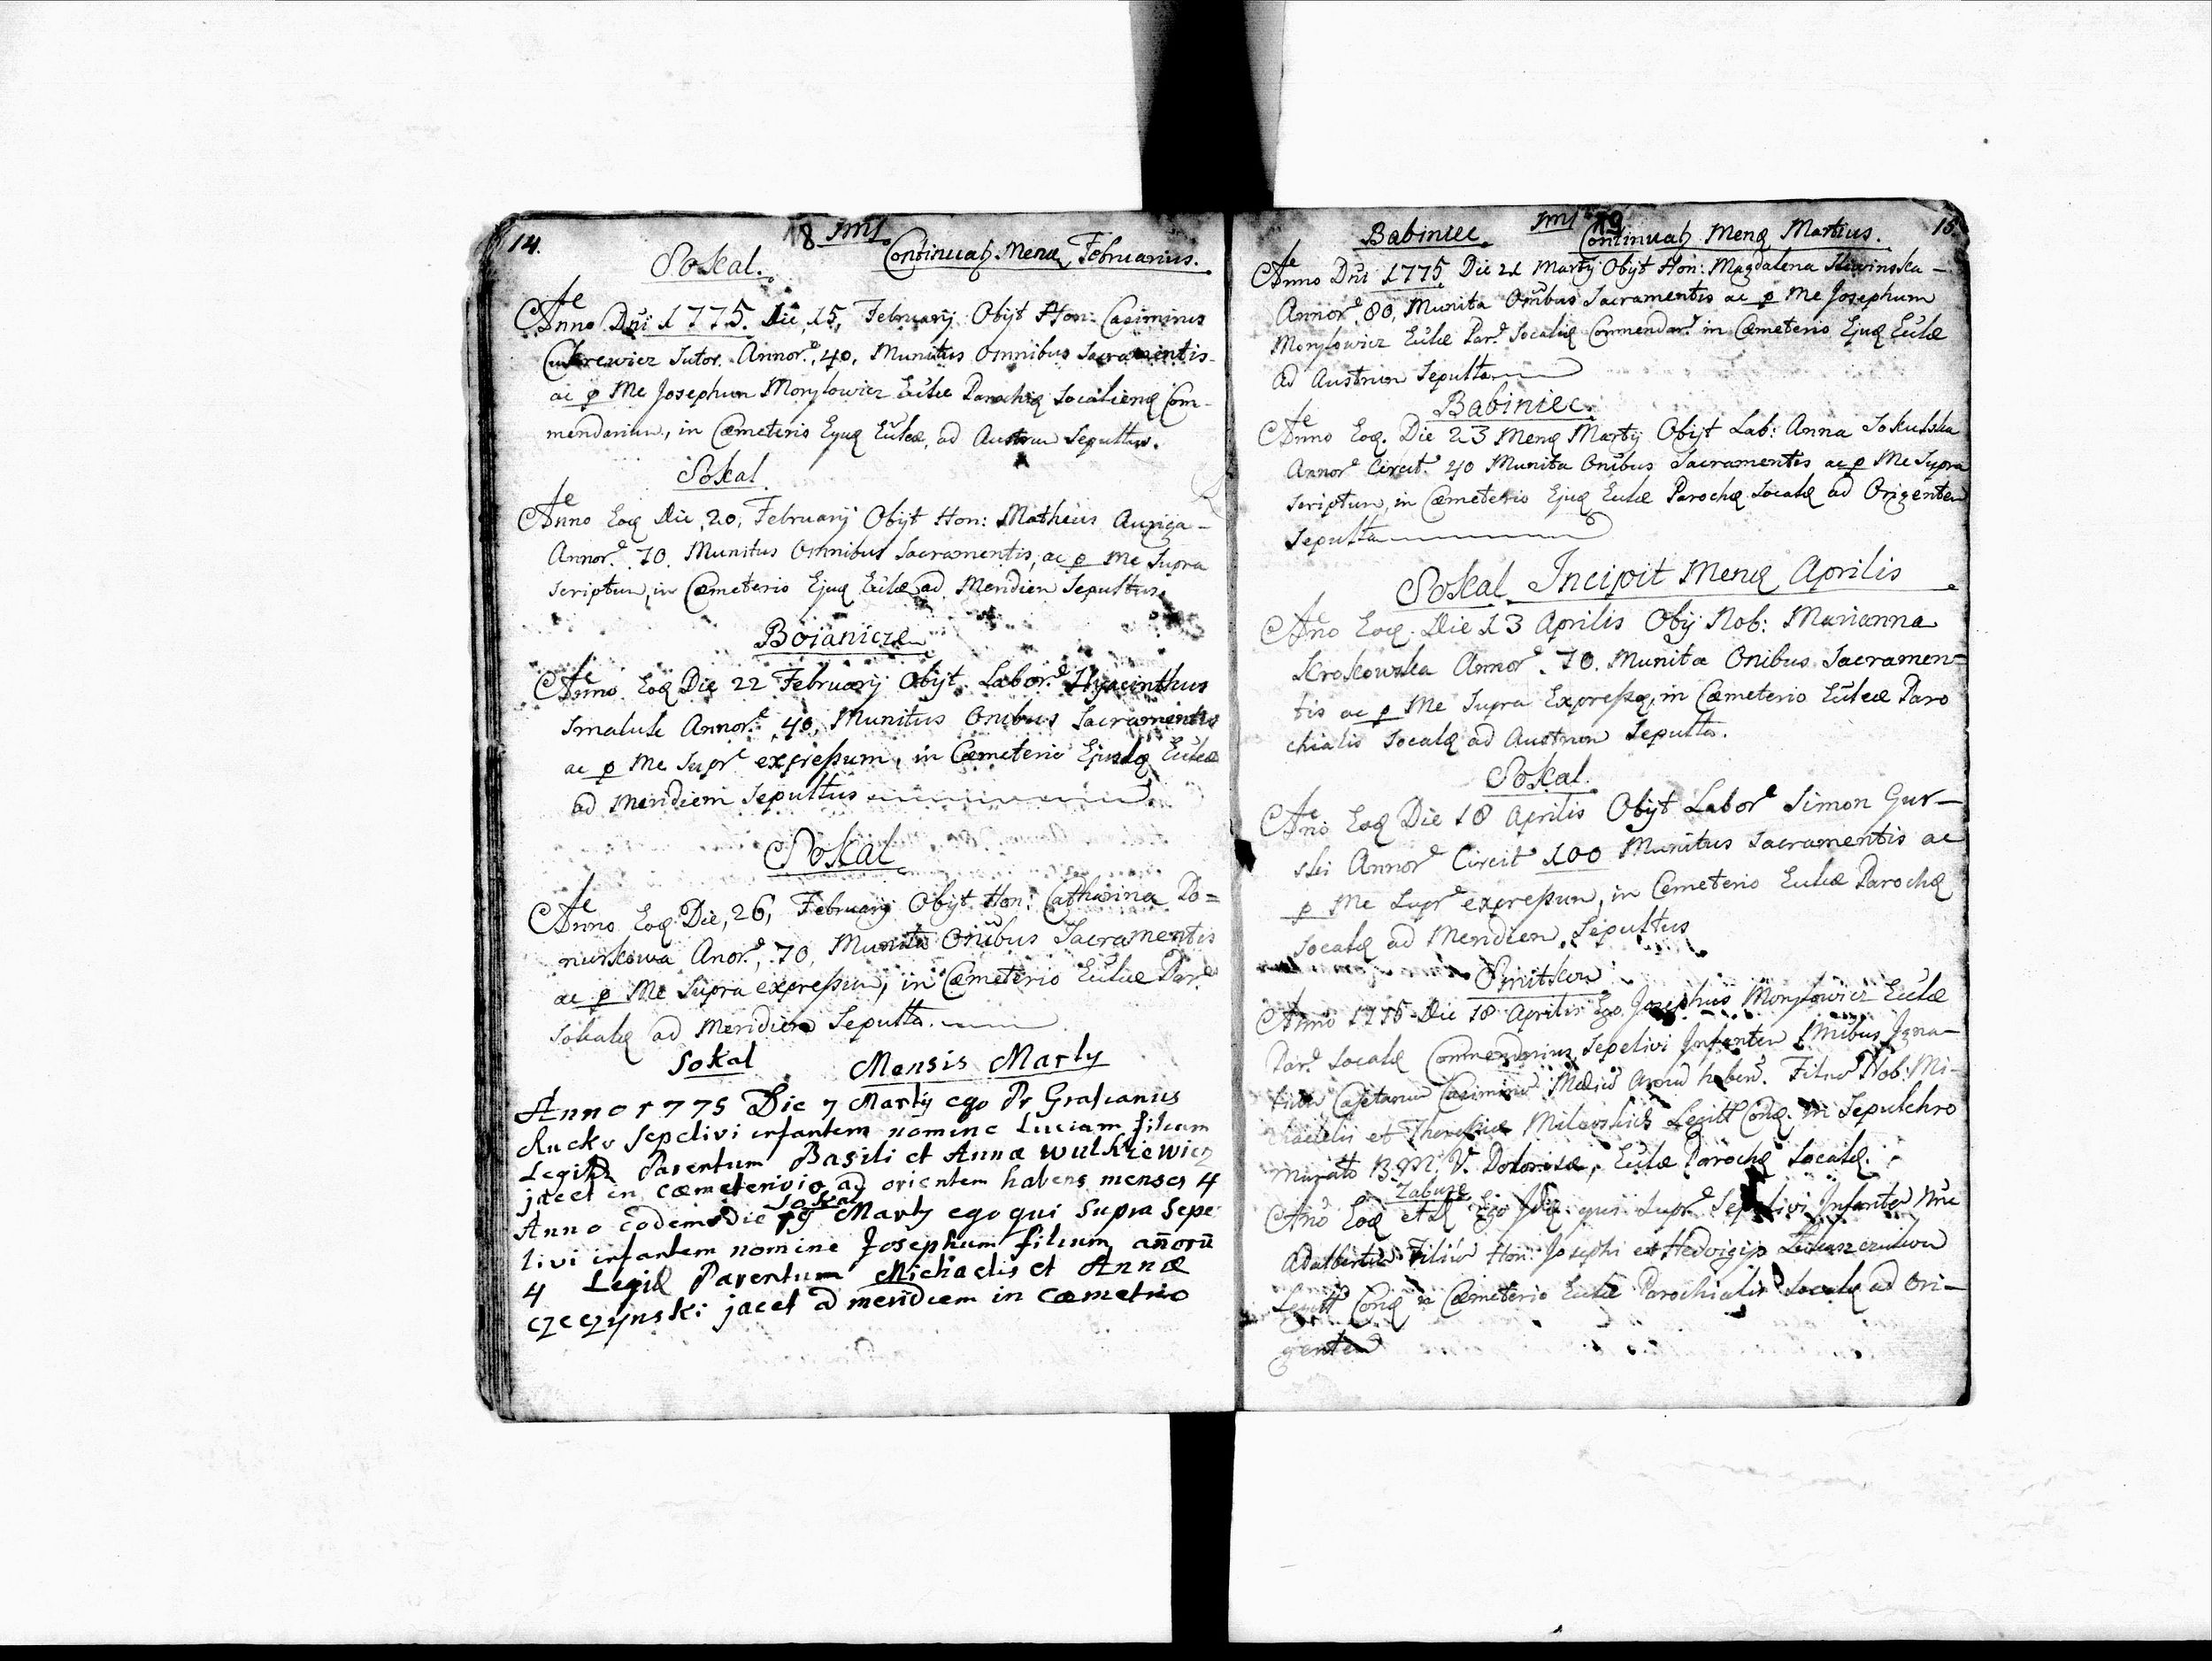 14. 18 JMJ
Sokal. Continuat. Mensq Februarius.
Anno Dni 1775. Die, 15, Februarij Obijt Hon: Casimirus
Cukrewicz Sutor. Annor. 40, Munitus Omnibus Sacramentis
ac p Me Josephum Morylowicz Ecclae Parochiq Socalienq Com-
mendarium, in Cæmeterio Ejusq Ecclæ, ad Austrum Sepultus.
Sokal
Anno Eoq Die, 20, Februarij Obijt Hon: Matheus Auriga
Annor. 70. Munitus Omnibus Sacramentis, ac p Me Supra
scriptum, in Cæmeterio Ejusq Eccla ad Meridien Sepultus.
Boianicze
Anno Eoq Die 22 Februarij Obijt Labor. Hyacinthus
Smaluk Annor. 40, Munitus Onibus Sacramentis
ac p Me Supr expressum, in Cæmeterio Ejusdq Ecclæ
ad Meridiem Sepultus
Sokal
Anno Eoq Die, 26, Februarij Obijt Hon: Catharina Po=
nurkowa Anor. 70, Munita Onibus Sacramentis
ac p Me Supra expressum, in Cæmeterio Ecclæ Par.
Sokalq ad Meridiem Sepulta.
Sokal Mensis Marty
Anno 1775 Die 7 Martij ego Pr Gratianus
Rucky Sepelivi infantem nomine Luciam filiam
Legitt Parentum Basili et Annæ Wulkiewicz
jacet in cæmeterivio ad orientem habens menses 4
Sokal
Anno eodem die 19 Marty ego qui Supra Sepe
livi infantem nomine Josephum filium añorū
4 Legitt Parentum Michaelis et Annæ
czeczynski jacet ad meridiem in cæmetrio
JMJ 19 15.
Babiniec. Continuat. Mensq Martius.
Anno Dni 1775 Die 21 Martij Obijt Hon: Magdalena Sliwinska
Annor. 80, Munita Omibus Sacramentis ac p Me Josephum
Morylowicz Ecclæ Par. Socaliq Commendar. in Cæmeterio Ejusq Ecclæ
ad Austrum Sepulta
Babiniec.
Anno Eoq. Die 23 Mensq Martij Obijt Lab: Anna Sokulska
Annor. Circit. 40 Munita Onibus Sacramentis ac p Me Supra
scriptum, in Cæmeterio Ejusq Ecclæ Parochq Socalq ad Origentem
Sepulta
Sokal Incipit Mensq Aprilis
Ano Eoq. Die 13 Aprilis Obij Nob: Marianna
Skrokowska Annor. 70. Munita Onibus Sacramen=
tis ac p Me Supra Expressq, in Cæmeterio Ecclæ Paro
chialis Socalq ad Austrum Sepulta.
Sokal.
Ano Eoq Die 18 Aprilis Obijt Labor Simon Gur-
ski Annor Circit 100 Munitus Sacramentis ac
p Me Supr expressum, in Cemeterio Ecclæ Parochq
Socalq ad Meridiem, Sepultus
Smitkow
Anno 1775 Die 18 Aprilis Ego Josephus Morylowicz Ecclæ
Par. Socalq Commendarius, Sepelivi Infantem Nnibus Igna-
tium Cajetanum Casimirum Medium Annum haben. Filium Nob: Mi-
chaelis et Theressiæ Milewskich Legitt Conq. in Sepulchro
Murato B. M. V. Dolorisæ, Ecclæ Parochq Socalq.
Zabuze
Ano Eoq etdq Ego Idq qui Supr Sepelivi Infantem Nne
Adalbertum Filium Hon: Josephi et Hedvigis
Legitt Conq in Cæmeterio Ecclæ Parochialis Socalq ad Ori-
gentem